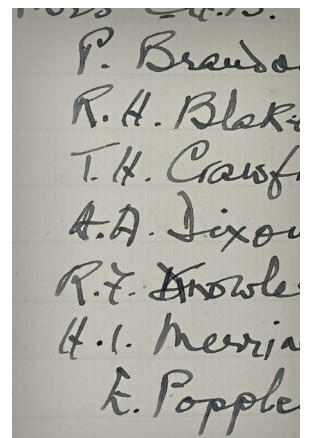 P. Brando
R. H. Blak
T. H. Crawf
A. A. Dixon
R. F. Knowle
H. I. Merria
E. Popple